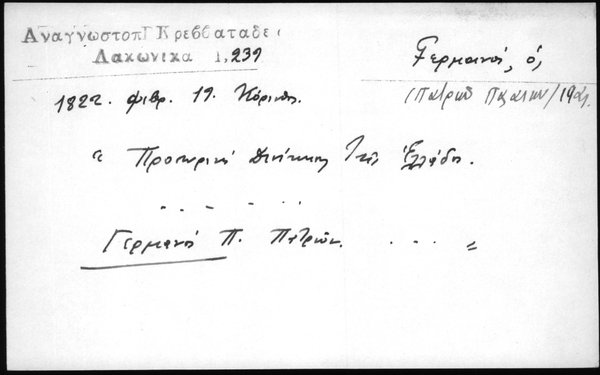 Αναγνωστοπ Γ Κρεββαταδε
Λακωνικα 1,239
Γερμανός, ὁ,
(Παλαιῶν Πατρῶν/1921.
1822. φεβρ. 19. Κόρινθ.
" Προσωρινή Διοίκησις τῆς Ἑλλάδος.
. . - . . . .
Γερμανός Π. Πατρῶν. . . . "